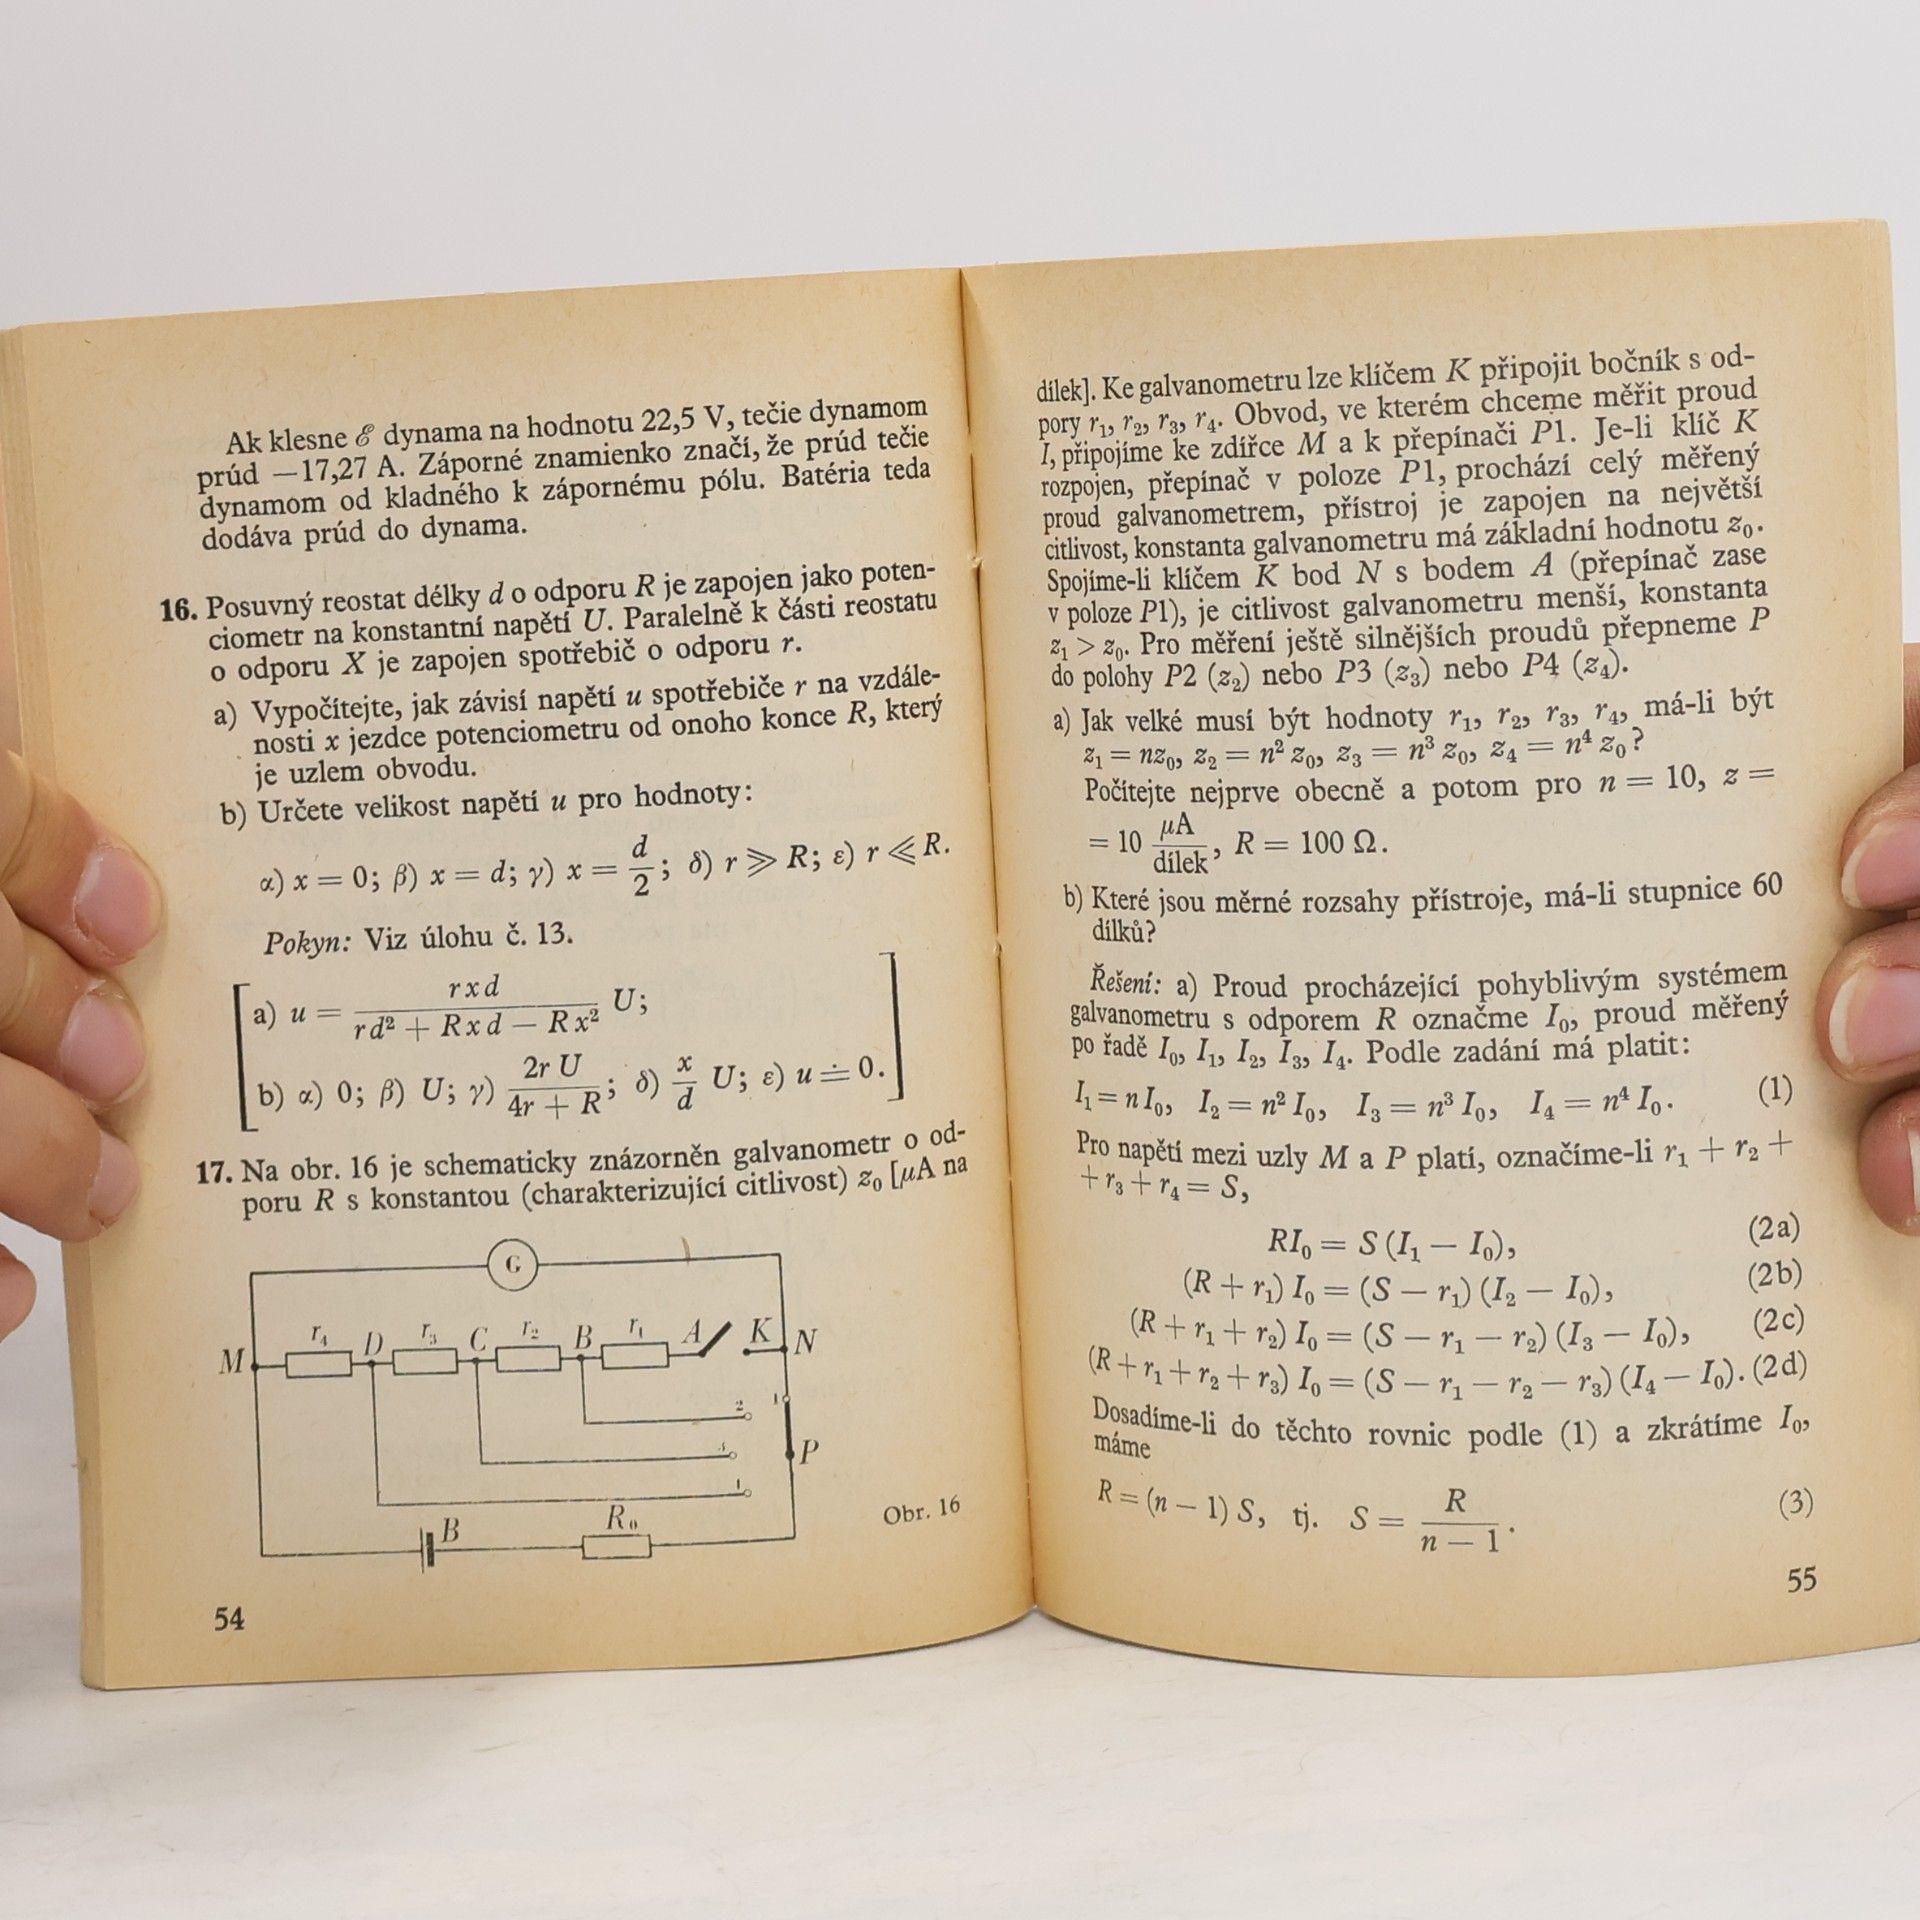 Ak klesne ℰ dynama na hodnotu 22,5 V, tečie dynamom
prúd —17,27 A. Záporné znamienko značí, že prúd tečie
dynamom od kladného k zápornému pólu. Batéria teda
dodáva prúd do dynama.
16. Posuvný reostat délky d o odporu R je zapojen jako poten-
ciometr na konstantní napětí U. Paralelně k části reostatu
o odporu X je zapojen spotřebič o odporu r.
a) Vypočítejte, jak závisí napětí u spotřebiče r na vzdále-
nosti x jezdce potenciometru od onoho konce R, který
je uzlem obvodu.
b) Určete velikost napětí u pro hodnoty:
α) x = 0; β) x = d; γ) x = d/2; δ) r ⪢ R; ε) r ⪡ R.
Pokyn: Viz úlohu č. 13.
a) u = rxd / (rd² + Rxd — Rx²) U;
b) α) 0; β) U; γ) 2r U / (4r + R); δ) x/d U; ε) u ≐ 0.
17. Na obr. 16 je schematicky znázorněn galvanometr o od-
poru R s konstantou (charakterizující citlivost) z₀ [μA na
G
M r₄ D r₃ C r₂ B r₁ A K N
2 1
P
B R₀
Obr. 16
54
dílek]. Ke galvanometru lze klíčem K připojit bočník s od-
pory r₁, r₂, r₃, r₄. Obvod, ve kterém chceme měřit proud
I, připojíme ke zdířce M a k přepínači P1. Je-li klíč K
rozpojen, přepínač v poloze P1, prochází celý měřený
proud galvanometrem, přístroj je zapojen na největší
citlivost, konstanta galvanometru má základní hodnotu z₀.
Spojíme-li klíčem K bod N s bodem A (přepínač zase
v poloze P1), je citlivost galvanometru menší, konstanta
z₁ > z₀. Pro měření ještě silnějších proudů přepneme P
do polohy P2 (z₂) nebo P3 (z₃) nebo P4 (z₄).
a) Jak velké musí být hodnoty r₁, r₂, r₃, r₄, má-li být
z₁ = nz₀, z₂ = n² z₀, z₃ = n³ z₀, z₄ = n⁴ z₀?
Počítejte nejprve obecně a potom pro n = 10, z =
= 10 μA/dílek, R = 100 Ω.
b) Které jsou měrné rozsahy přístroje, má-li stupnice 60
dílků?
Řešení: a) Proud procházející pohyblivým systémem
galvanometru s odporem R označme I₀, proud měřený
po řadě I₀, I₁, I₂, I₃, I₄. Podle zadání má platit:
I₁ = n I₀, I₂ = n² I₀, I₃ = n³ I₀, I₄ = n⁴ I₀. (1)
Pro napětí mezi uzly M a P platí, označíme-li r₁ + r₂ +
+ r₃ + r₄ = S,
RI₀ = S (I₁ — I₀), (2a)
(R + r₁) I₀ = (S — r₁) (I₂ — I₀), (2b)
(R + r₁ + r₂) I₀ = (S — r₁ — r₂) (I₃ — I₀), (2c)
(R + r₁ + r₂ + r₃) I₀ = (S — r₁ — r₂ — r₃) (I₄ — I₀). (2d)
Dosadíme-li do těchto rovnic podle (1) a zkrátíme I₀,
máme
R = (n — 1) S, tj. S = R / (n — 1). (3)
55